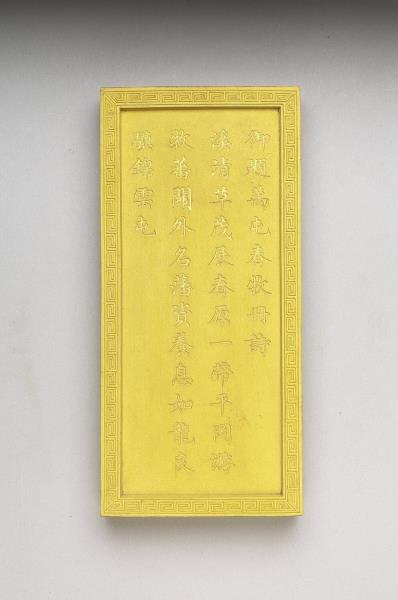 御題萬屯春牧冊詩
溪清草茂展春原一帶平岡游
牧蕃關外名藩資養息如龍文
驥錦雲屯